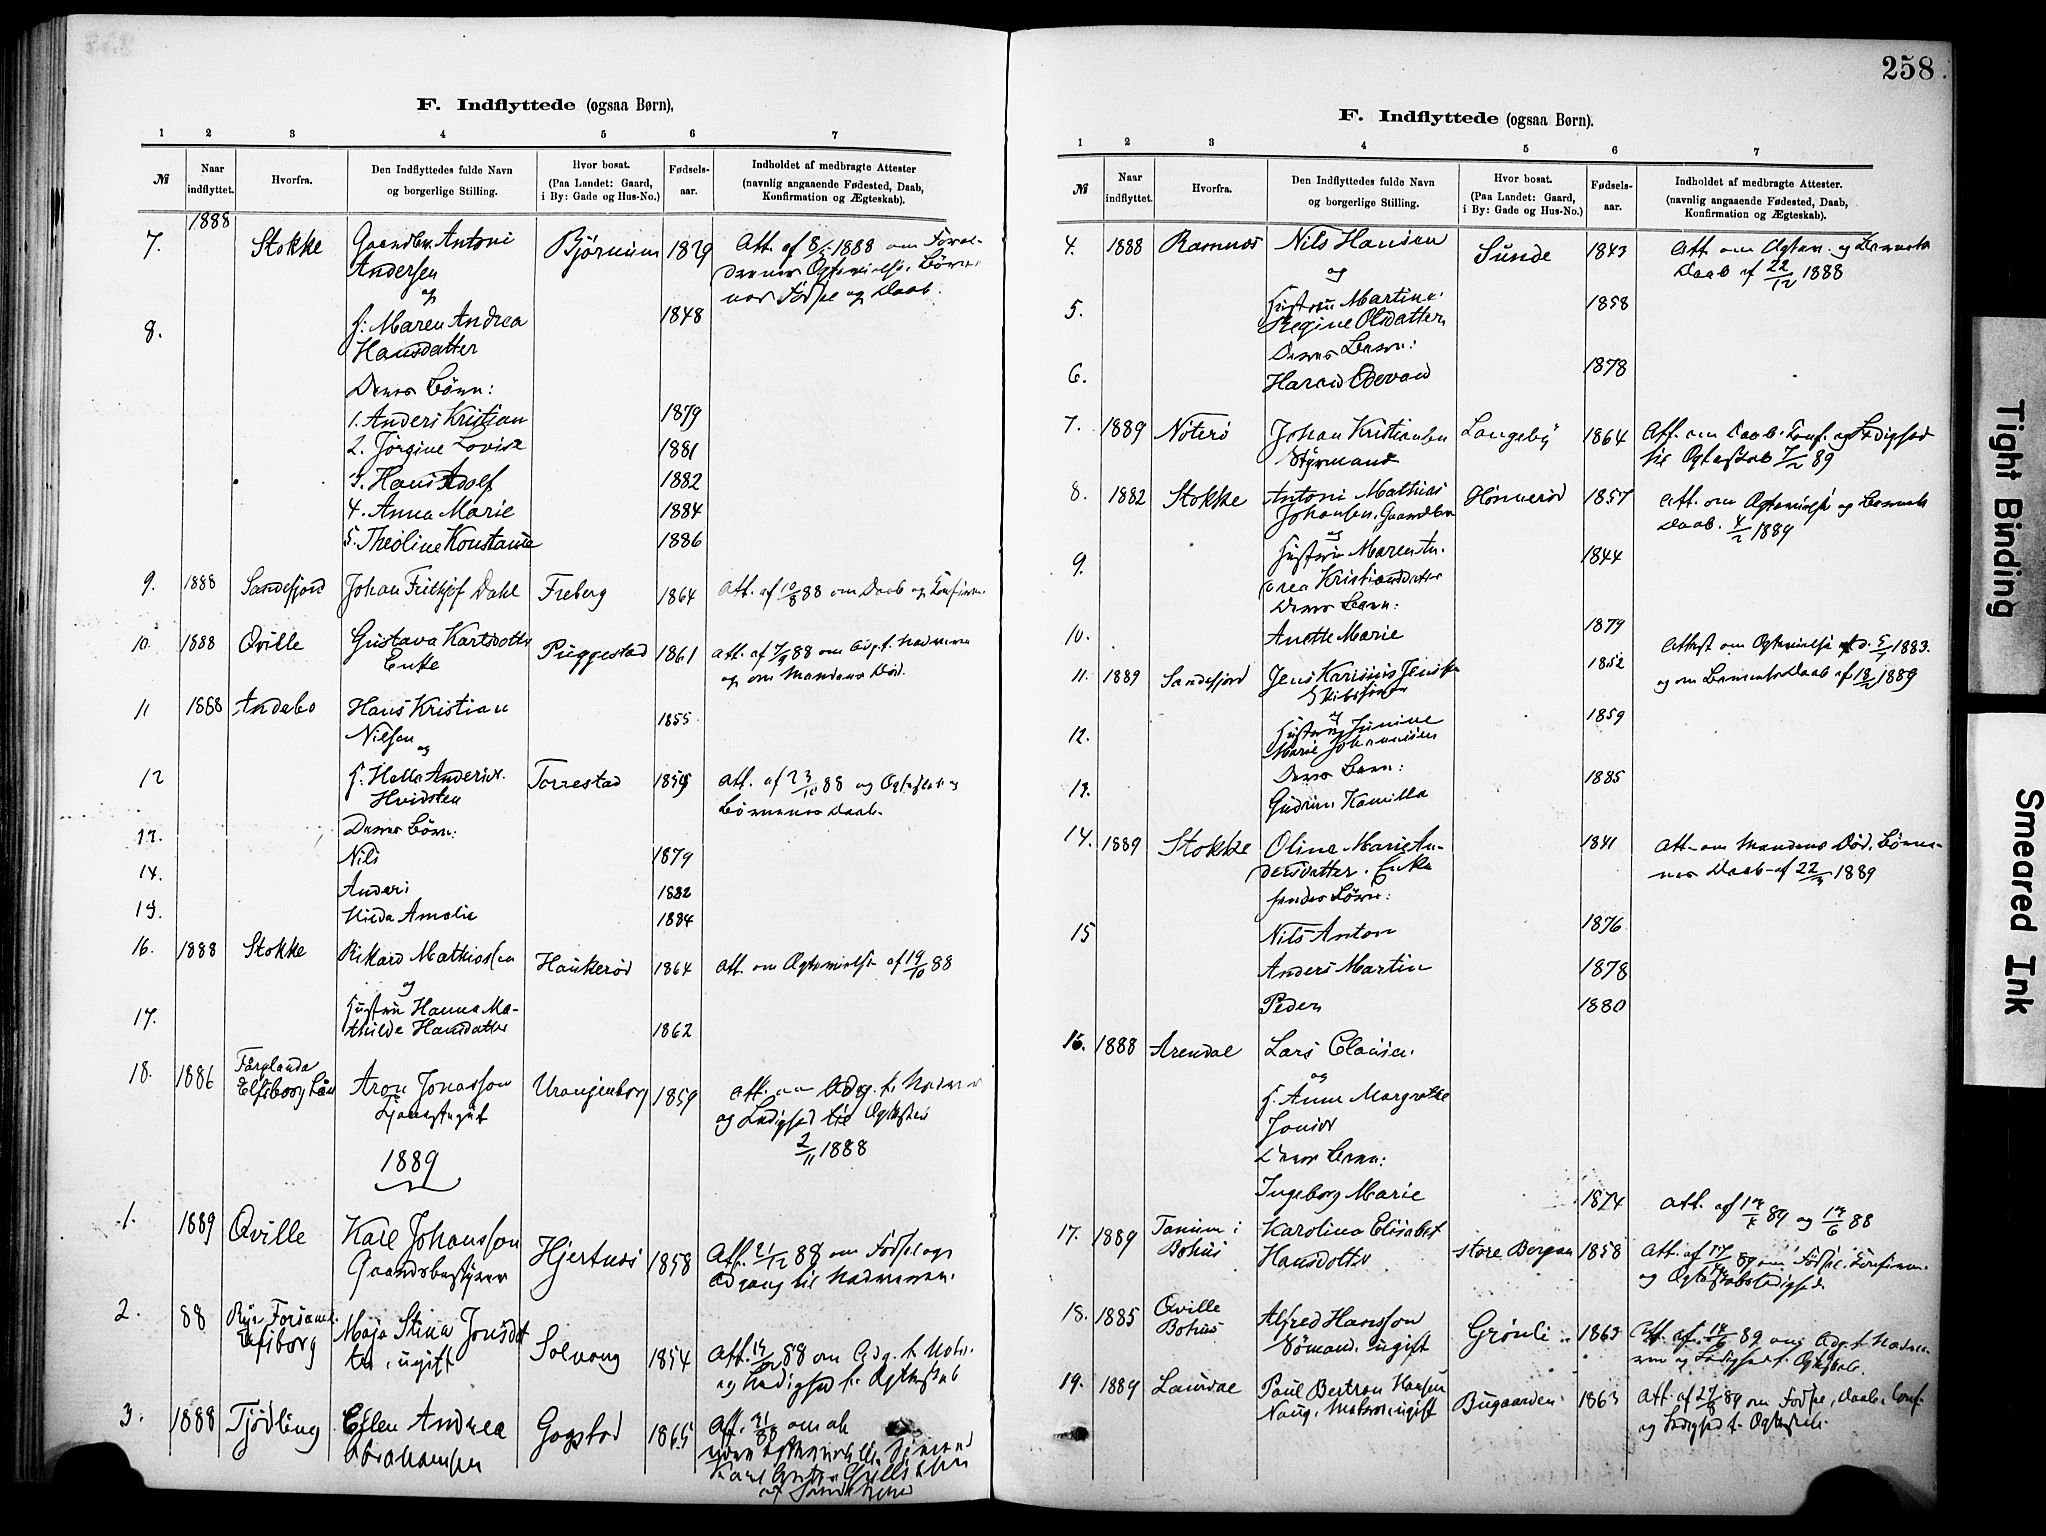 258
F. Indflyttede (ogsaa Børn).
1 2 3 4 5 6 7
№ Naar indflyttet. Hvorfra. Den Indflyttedes fulde Navn og borgerlige Stilling. Hvor bosat. (Paa Landet: Gaard, i By: Gade og Hus-No.) Fødsels-aar. Indholdet af medbragte Attester (navnlig angaaende Fødested, Daab, Konfirmation og Ægteskab).
1888
7. Stokke Gaardbr. Antoni Bjørnum 1829 Att. af 8/1 1888 om
Andersen
og
8. f: Maren Andrea 1848
Hansdatter
Deres Børn:
1. Anders Kristian 1879
2. Jørgine Lovise 1881
3. Hans Adolf 1882
4. Anna Marie 1884
5. Theoline Konstanse 1886
9. 1888 Sandefjord Johan Frithjof Dahl Freberg 1864 Att. af 10/8 88 om Daab og Konfirm.
10. 1888 Qville Gustava Karlsdotter Puggestad 1861 Att. af 7/9 88 om Adg. t. Nadveren
Enke og om Mandens Død.
11 1888 Andebo Hans Kristian 1855
Nilsen
og
12 f. Helle Andersdr. Torrestad Att. af 23/10 88 og
Hvidsten Børnenes Daab.
13. Deres Børn:
Nils 1879
14. Anders 1882
15. Hilda Amalie 1884
16. 1888 Stokke Rikard Mathiassen Haukerød 1864 Att. om Ægtevielse af 19/10 88
og
17. Hustru Hanna Ma-
thilde Hansdatter 1862
18. 1886 Färglanda
Elfsborg Län Aron Jonasson Uranienborg 1859 Att. om Adg. t. Nadver
Tjenestegut og Ledighed til Ægteskab
2/11 1888
1889
1. 1889 Qville Karl Johansson Hjertnes 1858 Att. 21/12 88 om Fødsel og
Gaardsbestyrer Adgang til Nadveren.
2. 88 Elfsborg Maja Stina Jonsdot
ter, ugift Solvang 1854 Att. 88 om Adg. t. Nadv.
og Ledighed f. Ægteskab
3. 1888 Tjødling Ellen Andrea Gogstad 1865 Att.
Abrahamsen
F. Indflyttede (ogsaa Børn).
1 2 3 4 5 6 7
№ Naar indflyttet. Hvorfra. Den Indflyttedes fulde Navn og borgerlige Stilling. Hvor bosat. (Paa Landet: Gaard, i By: Gade og Hus-No.) Fødsels-aar. Indholdet af medbragte Attester. (navnlig angaaende Fødested, Daab, Konfirmation og Ægteskab).
4. 1888 Ramnes Nils Hansen Sunde 1843 Att. om Ægtev. og Barnets
og Daab af 22/12 1888
5. Hustru Martine 1858
Regine Olsdatter
Deres Barn:
6. 1878
7. 1889 Nøterø Johan Kristiansen Langeby 1864 Att. om Daab, Konf. og Ledighed
Styrmand til Ægteskab 7/2 89
8. 1882 Stokke Antoni Mathias 1857 Att. om Ægtevielse og Barnets
Johansen, Gaardbr. Daab. 4/2 1889
og
9. Hustru Maren An- 1844
drea Kristiansdatter
Deres Barn:
10. Anette Marie 1879
Attest om Ægtevielse 1883.
11. 1889 Sandefjord 1852 og om Barnets Daab af 18/2 1889
og
12. Hustru Junine 1859
Marie Johannesen
Deres Barn:
13. Gudrun Kamilla 1885
14. 1889 Stokke Oline Marie An- 1841 Att. om Mandens Død, Børne-
dersdatter. Enke nes Daab af 22/3 1889
hendes Børn:
15 Nils Anton 1876
Anders Martin 1878
Peder 1880
16. 1888 Arendal Lars Clausen
og
f. Anne Margrethe
Deres Barn:
Ingeborg Marie 1874 Att. af 89 og 88
17. 1889 Tanum i
Bohus Karolina Elisabet
Hansdotter Store Bergan 1858 Att. af 89 om Fødsel, Konfirm.
og Ægteskabsledighed
18. 1885 Qville
Bohus Alfred Hansson
Sømand, ugift Grønli 1863 Att. af 89 om Adg. t. Nadve-
ren og Ledighed t. Ægteskab.
19. 1889 Laurdal Paul Bertran Hansen
ugift Bugaarden 1863 Att. af 27/8 89 om Fødsel, Daab, Konf.
og Ledighed t. Ægteskab
Tight Binding
Smeared Ink